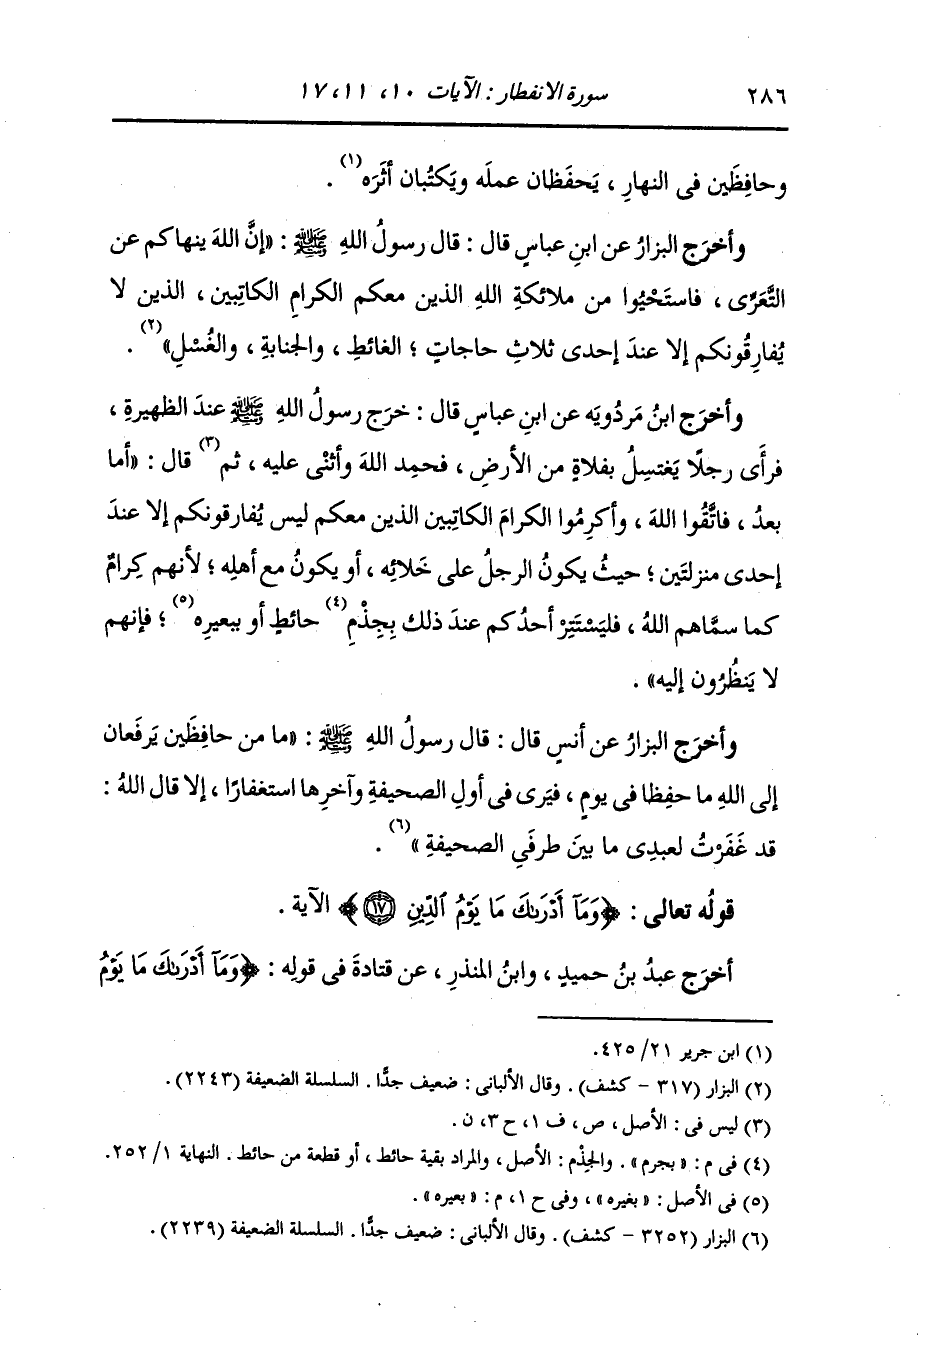 ٢٨٦ سورة الانفطار : الآيات ١٠، ١١، ١٧
وحافِظَين فى النهارِ ، يَحفَظان عملَه ويَكتُبان أثَرَه(١) .
وأخرَج البزارُ عن ابنِ عباسٍ قال : قال رسولُ اللهِ ﷺ : «إنَّ اللهَ ينهاكم عن
التَّعَرِّى ، فاستَحْيُوا من ملائكةِ اللهِ الذين معكم الكرامِ الكاتِبين ، الذين لا
يُفارِقُونكم إلا عندَ إحدى ثلاثِ حاجاتٍ ؛ الغائطِ ، والجنابةِ ، والغُسْلِ»(٢) .
وأخرَج ابنُ مَردُويَه عن ابنِ عباسٍ قال : خرَج رسولُ اللهِ ﷺ عندَ الظهيرةِ ،
فرأَى رجلًا يَغتسِلُ بفلاةٍ من الأرضِ ، فحمِد اللهَ وأثنْى عليه ، ثم(٣) قال : «أما
بعدُ ، فاتَّقُوا اللهَ ، وأكرِمُوا الكرامَ الكاتِبين الذين معكم ليس يُفارقونكم إلا عندَ
إحدى منزلتَين ؛ حيثُ يكونُ الرجلُ على خَلائِه ، أو يكونُ مع أهلِه ؛ لأنهم كِرامٌ
كما سمَّاهم اللهُ ، فليَسْتَتِرْ أحدُكم عندَ ذلك بِجِذْمِ(٤) حائطٍ أو ببعيرِه(٥) ؛ فإنهم
لا يَنظُرُون إليه» .
وأخرَج البزارُ عن أنسٍ قال : قال رسولُ اللهِ ﷺ : «ما من حافِظَين يَرفَعان
إلى اللهِ ما حفِظا فى يومٍ ، فيَرى فى أولِ الصحيفةِ وآخرِها استغفارًا ، إلا قال اللهُ :
قد غَفَرْتُ لعبدِى ما بينَ طرفَيِ الصحيفةِ»(٦) .
قولُه تعالى : ﴿وَمَآ أَدْرَىٰكَ مَا يَوْمُ ٱلدِّينِ ١٧﴾ الآية .
أخرَج عبدُ بنُ حميدٍ ، وابنُ المنذرِ ، عن قتادةَ فى قولِه : ﴿وَمَآ أَدْرَىٰكَ مَا يَوْمُ
(١) ابن جرير ٢١/ ٤٢٥.
(٢) البزار (٣١٧ - كشف) . وقال الألبانى : ضعيف جدًّا . السلسلة الضعيفة (٢٢٤٣) .
(٣) ليس فى : الأصل ، ص ، ف ١، ح ٣، ن .
(٤) فى م : «بجرم» . والجِذْم : الأصل ، والمراد بقية حائط ، أو قطعة من حائط . النهاية ١/ ٢٥٢.
(٥) فى الأصل : «بغيره» ، وفى ح ١، م : «بعيره» .
(٦) البزار (٣٢٥٢ - كشف) . وقال الألبانى : ضعيف جدًّا . السلسلة الضعيفة (٢٢٣٩) .